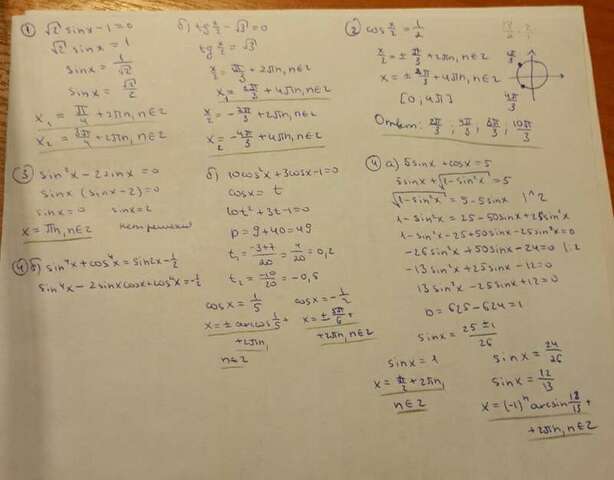 ① √2 sinx - 1 = 0
√2 sinx = 1
sinx = 1/√2
sinx = √2/2
x₁ = π/4 + 2πn, n∈Z
x₂ = 3π/4 + 2πn, n∈Z
б) tg x/2 - √3 = 0
tg x/2 = √3
x/2 = π/3 + 2πn, n∈Z
x₁ = 2π/3 + 4πn, n∈Z
x/2 = -2π/3 + 2πn, n∈Z
x₂ = -4π/3 + 4πn, n∈Z
② cos x/2 = 1/2
x/2 = ± π/3 + 2πn, n∈Z
x = ± 2π/3 + 4πn, n∈Z
[0, 4π]
4π/3
Ответ: 2π/3 ; 4π/3 ; 8π/3 ; 10π/3
③ sin²x - 2sinx = 0
sinx (sinx - 2) = 0
sinx = 0 sinx = 2
x = πn, n∈Z нет решений
б) 10cos²x + 3cosx - 1 = 0
cosx = t
10t² + 3t - 1 = 0
D = 9 + 40 = 49
t₁ = -3+7/20 = 4/20 = 0,2
t₂ = -10/20 = -0,5
cosx = 1/5 cosx = -1/2
x = ± arccos 1/5 +
+ 2πn,
n∈Z
x = ± 5π/6 +
+ 2πn, n∈Z
④ б) sin⁴x + cos⁴x = sin2x - 1/2
sin⁴x - 2sinx cosx + cos⁴x = -1/2
④ а) 5sinx + cosx = 5
5sinx + √1-sin²x = 5
√1-sin²x = 5 - 5sinx |^2
1 - sin²x = 25 - 50sinx + 25sin²x
1 - sin²x - 25 + 50sinx - 25sin²x = 0
-26sin²x + 50sinx - 24 = 0 |:2
-13sin²x + 25sinx - 12 = 0
13sin²x - 25sinx + 12 = 0
D = 625 - 624 = 1
sinx = 25 ± 1/26
sinx = 1
x = π/2 + 2πn,
n∈Z
sinx = 24/26
sinx = 12/13
x = (-1)ⁿ arcsin 12/13 +
+ 2πn, n∈Z